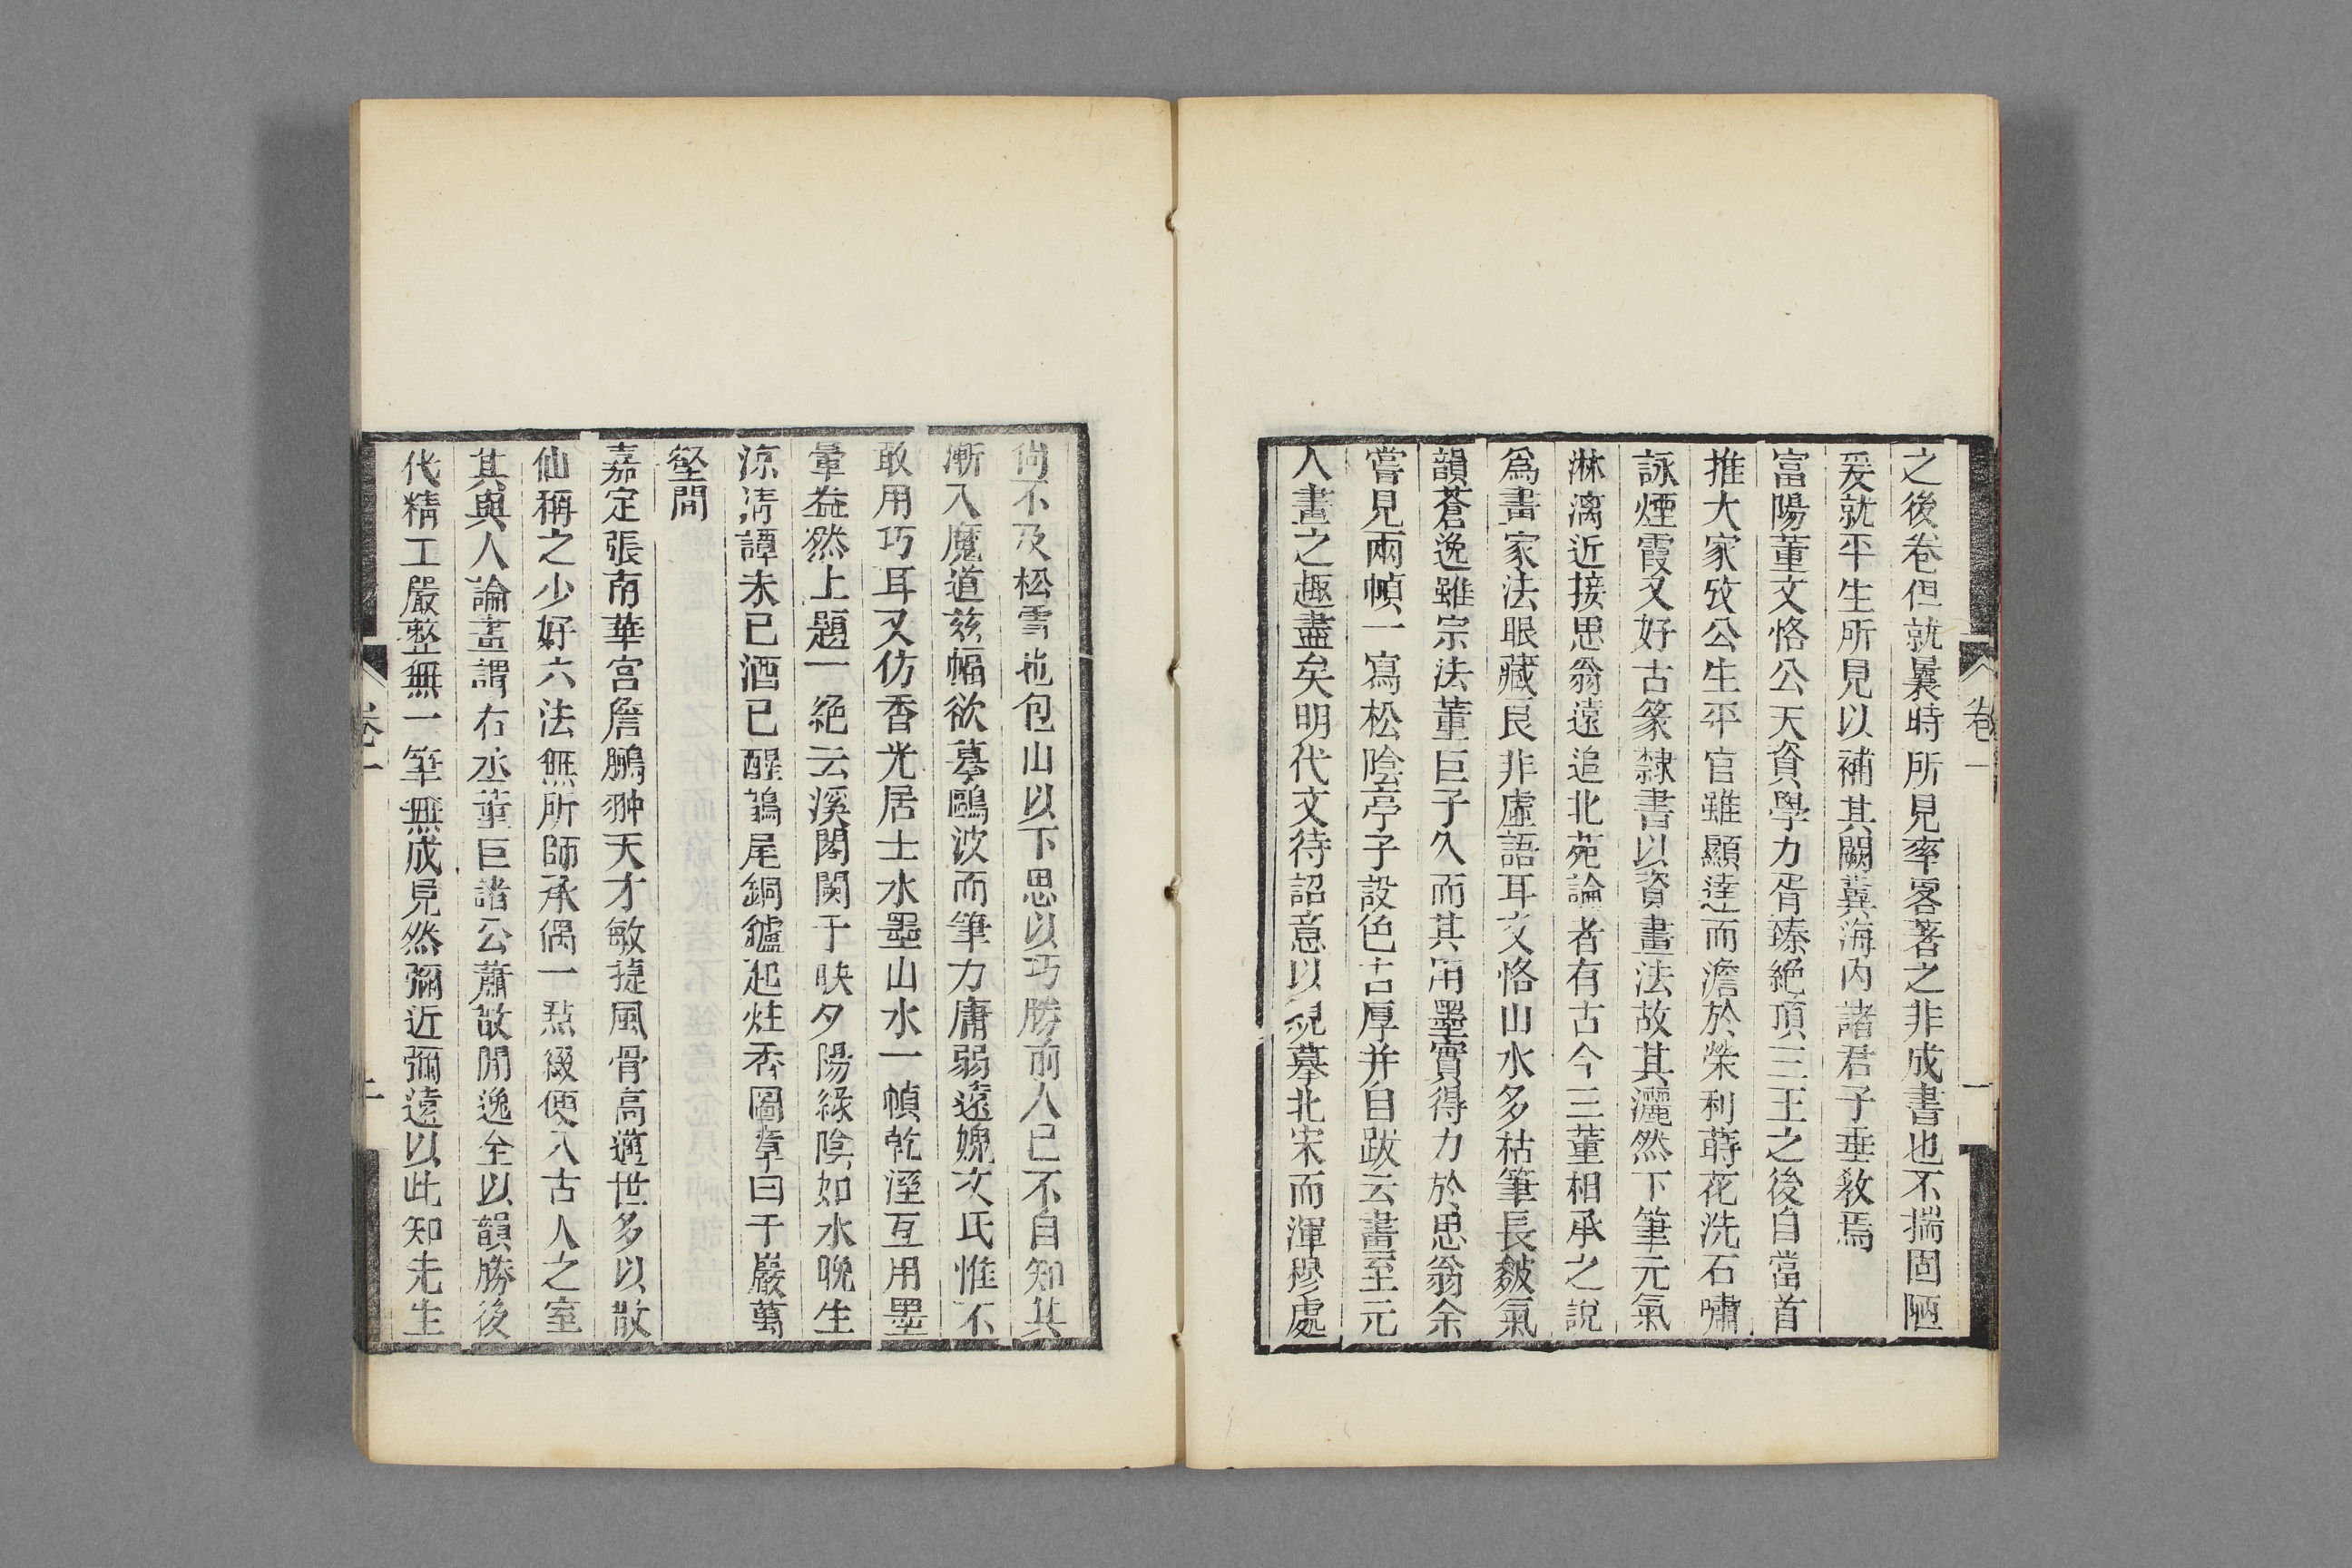 之後卷但就曩時所見率畧著之非成書也不揣固陋
爰就平生所見以補其闕冀海内諸君子垂敎焉
富陽董文恪公天資學力胥臻絶頂三王之後自當首
推大家攷公生平官雖顯達而澹於榮利蒔花洗石嘯
詠煙霞又好古篆隸書以資畫法故其灑然下筆元氣
淋漓近接思翁遠追北苑論者有古今三董相承之說
爲畫家法眼藏良非虛語耳文恪山水多枯筆長皴氣
韻蒼逸雖宗法董巨子久而其用墨實得力於思翁余
嘗見兩幀一寫松陰亭子設色古厚幷自跋云畫至元
人畫之趣盡矣明代文待詔意以貌摹北宋而渾穆處
卷一
一
尙不及松雪也包山以下思以巧勝前人已不自知其
漸入魔道茲幅欲摹鷗波而筆力庸弱遠媿文氏惟不
敢用巧耳又仿香光居士水墨山水一幀乾溼互用墨
暈益然上題一絶云溪閣闌干映夕陽綠陰如水晚生
涼凊譚未已酒已醒鵶尾銅鑪起炷香圖章曰千巖萬
壑間
嘉定張南華宮詹鵬翀天才敏捷風骨高邁世多以散
仙稱之少好六法無所師承偶一㸃綴便入古人之室
其與人論畫謂右丞董巨諸公蕭散閒逸全以韻勝後
代精工嚴整無一筆無成見然彌近彌遠以此知先生
卷一
二